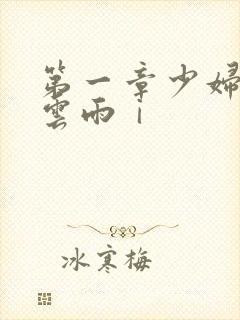 第一章少婦
雲雨｜
冰寒梅